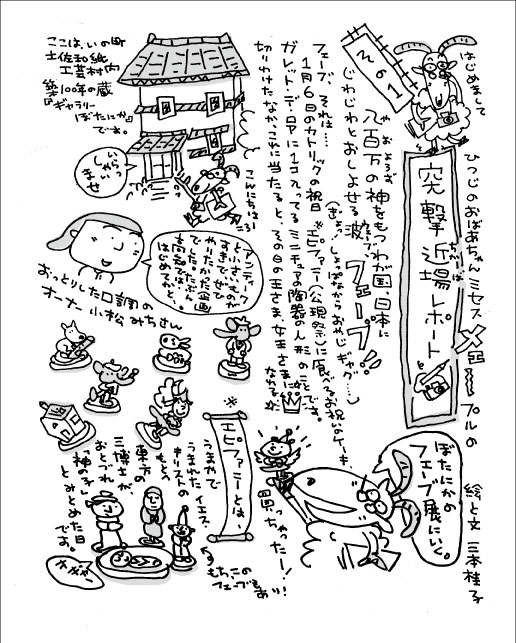 はじめまして
ひつじのおばあちゃんミセスメェープルの
突撃近場レポート
ちかば
絵と文 三本桂子
ぼたにかの
フェーブ展にいく。
その1
八百万の神をもつわが国日本に
やおよろず
じわじわとおしよせる波、フェーブ!!
(ぎょ!しょっぱなからおやじギャグ…)
フェーブ、それは…
1月6日のカトリックの祝日※エピファニー(公現祭)に食べるお祝いのケーキ、
ガレット・デ・ロアに1コ入ってるミニチュアの陶器の人形のことです。
切りわけたなか、これに当たると、その日の王さま、女王さまに
なれる
買っちゃったー!
ここは、いの町
土佐和紙
工芸村内
築100年の蔵
『ギャラリー
ぼたにか』
です。
いらっ
しゃい
ませ
こんにちはー
アンティーク
と小さいものが
すきで、ぜひ
やりたかった企画
でした。たぶん
高知では、
はじめてかと、
おっとりした口調の
オーナー小松みちさん
※エピファニーとは
うまやで
うまれたイエス・
キリストの
もとへ
東方の
三博士が
おとづれ
「神の子」
とみとめた日
です。
もち、この
フェーブもあり!